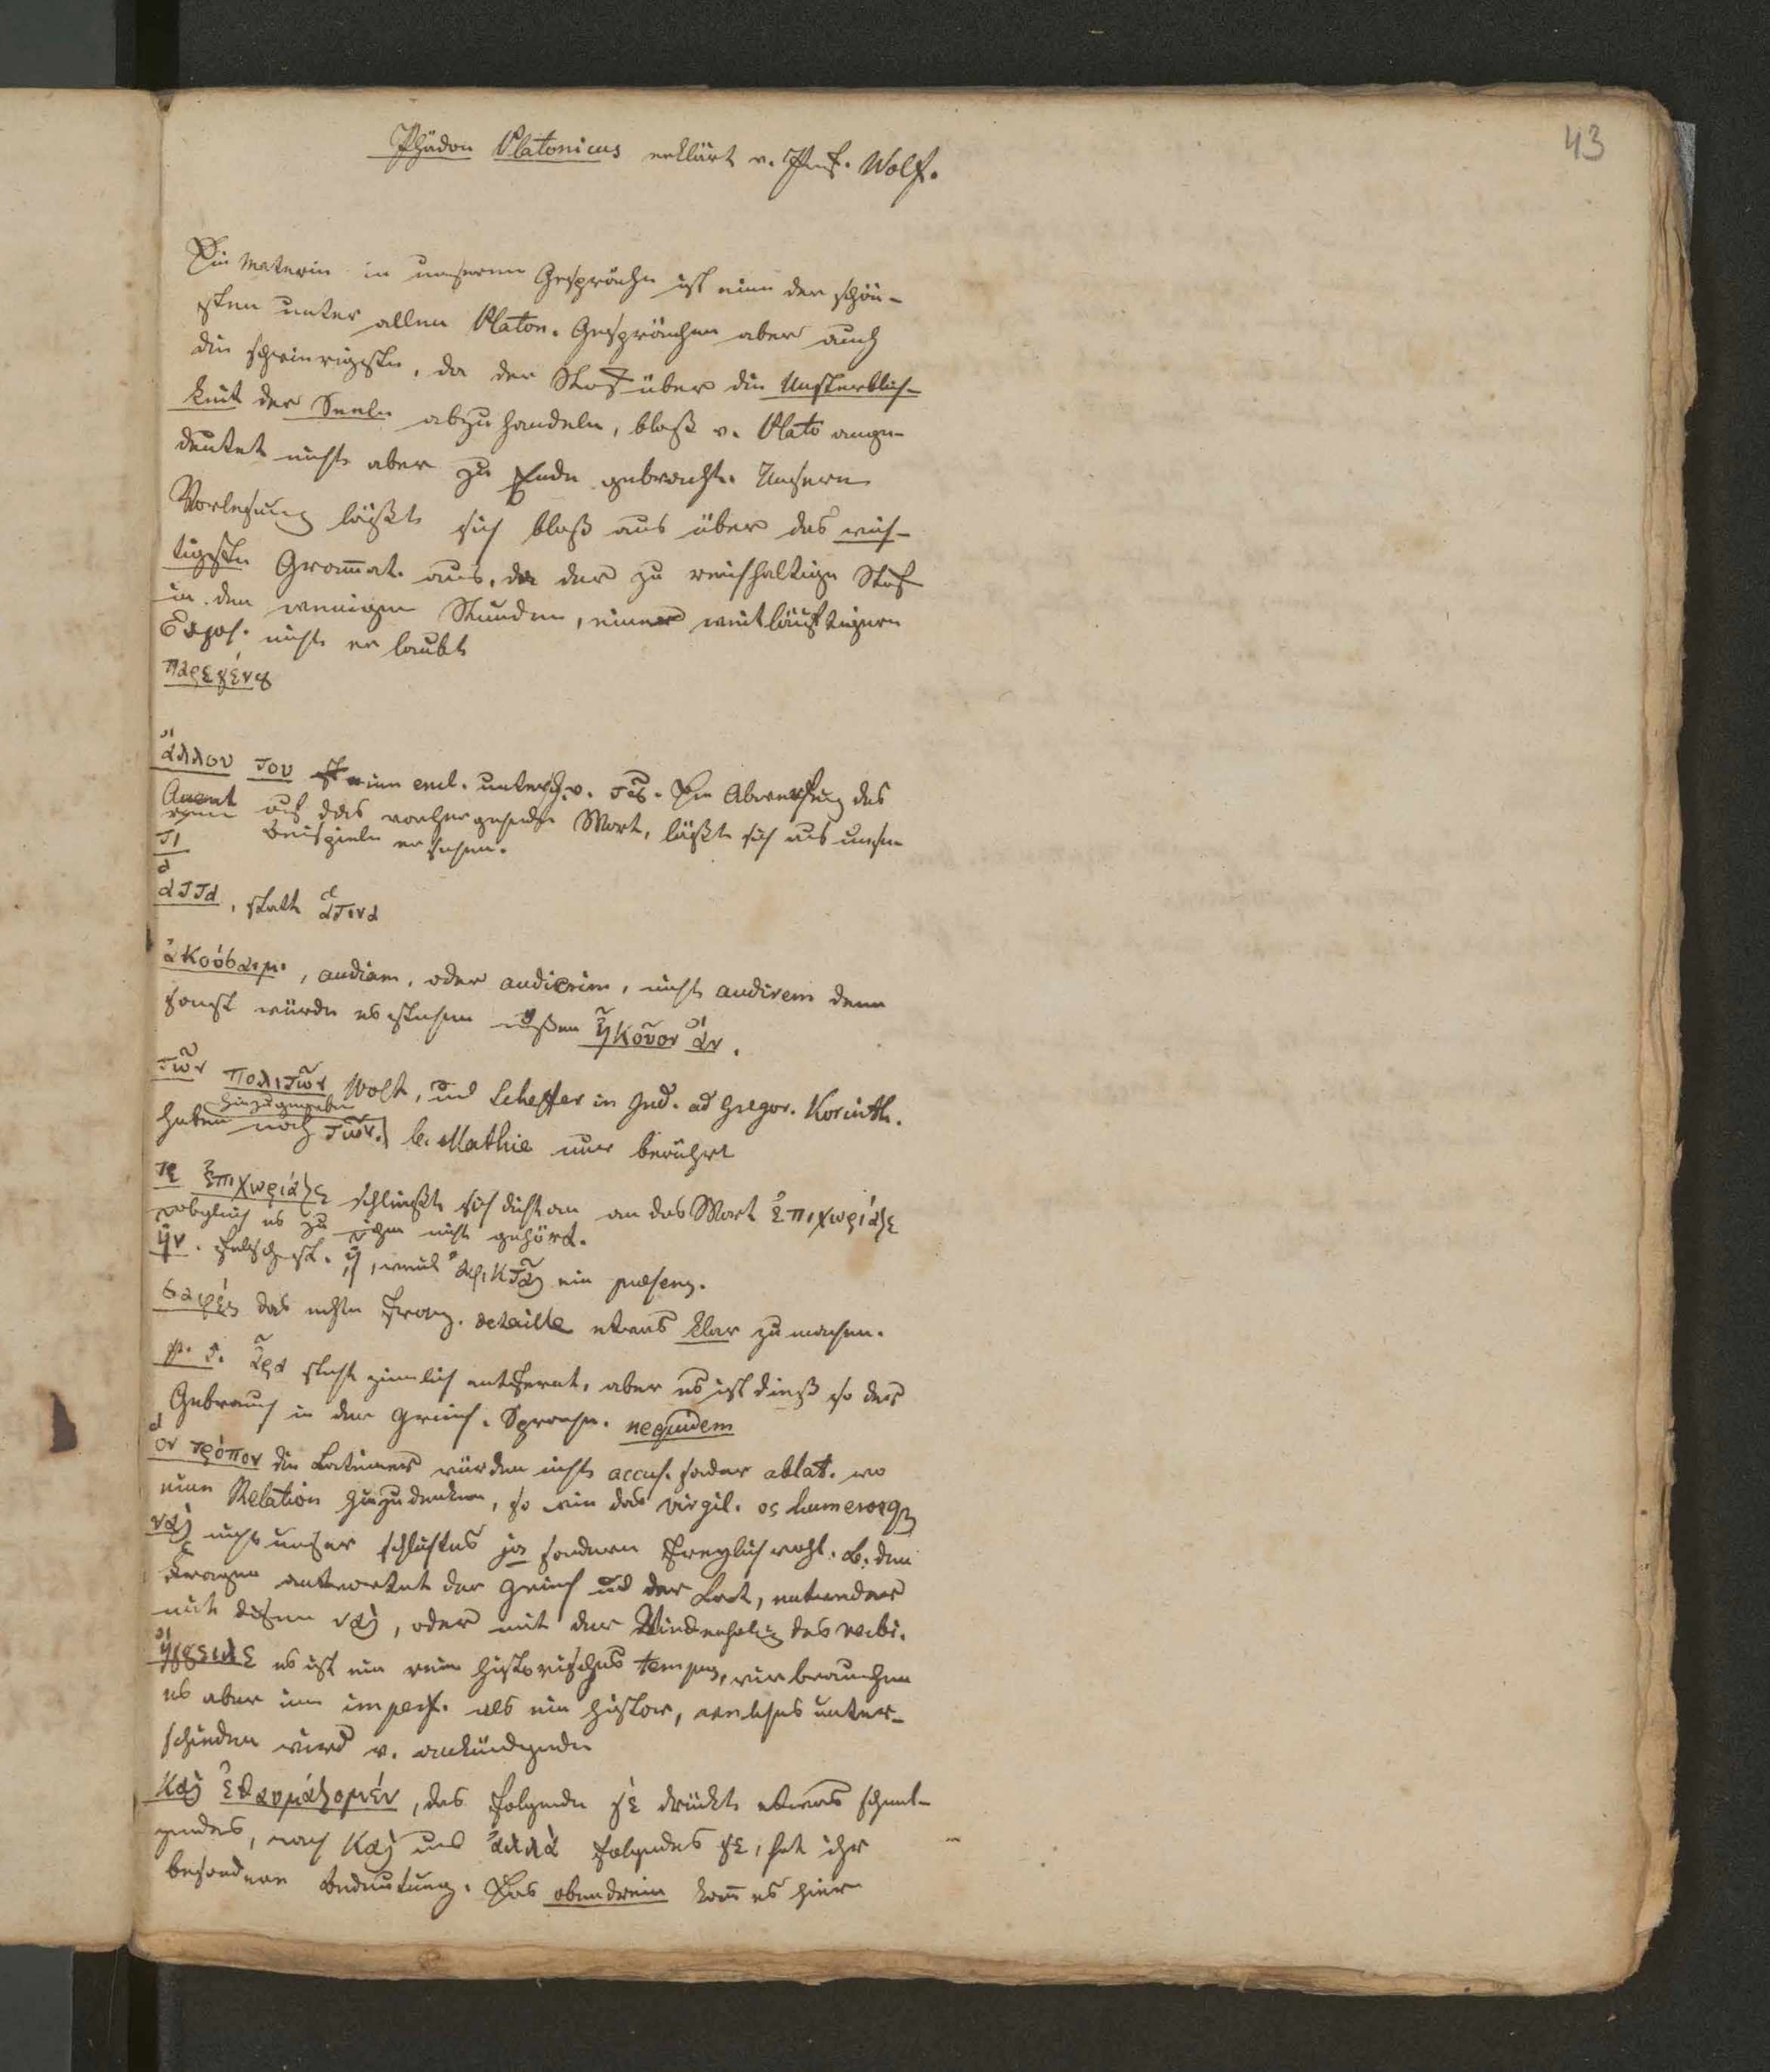 43
Phädon Platonicus erklärt v. Prof. Wolf.
Die Materie in unserem Gespräche ist eine der schön-
sten unter allen Platon. Gesprächen aber auch
die schwierigste, da der Stof über die Unsterblich-
keit der Seele abzuhandeln, bloß v. Plato ange-
deutet nicht aber zu Ende gebracht. Unsere
Vorlesung läßt sich bloß aus über das wich-
tigste Gram̄at. aus, da der zu reichhaltige Stof
in den wenigen Stunden, einer weitläuftigern
Expos. nicht erlaubt
παρεγένȣ
ἄλλου του encl. untersch. v. τίς. Die Abwerfung des
Accent auf das vorhergehende Wort, läßt sich aus
τι Beispiele ersehen.
ἅττα, statt ἅτινα
ἀκούσαιμι, audiam, oder audierim, nicht audirem denn
sonst würde es stehen müßen ἤκουον ἄν.
τῶν πολιτῶν Wolf, und Scheffer in Ind. ad Gregor. Korinth.
haben noch hinzugegeben τῶν. b. Mathie nur berührt
τε ἐπιχωριάζε schließt sich dicht an an das Wort ἐπιχωριάζε
obgleich es zu ihm nicht gehört.
ἦν. falsch st. ᾖ, weil ein praesens.
σαφές das echte Franz. detaille etwas klar zu machen.
p. 5. ἆρα steht ziemlich entfernt, aber es ist dieß so der
Gebrauch in der Griech. Sprache. nequidem
ὃν τρόπον die Lateiner würden nicht accus. sonder ablat. wo
eine Relation hinzudenken, so wie das Virgil. os humerosq
ναὶ nicht unser schlichtes ja sondern freylich wohl. b. den
Fragen antwortet der Griech und der Lat, entweder
mit diesem ναὶ, oder mit der Wiederholug des verbi.
ἤγγειλε es ist ein rein historisches tempus, wir brauchen
es aber im imperf. als ein histor, welches unter-
schieden wird v. ankündigende
καὶ ἐθαυμάζομεν, das folgende γὲ drückt etwas
nach καὶ und ἀλλὰ folgendes γε, hat ihr
besondere Bedeutung. Das obendrein kom̄ es hier